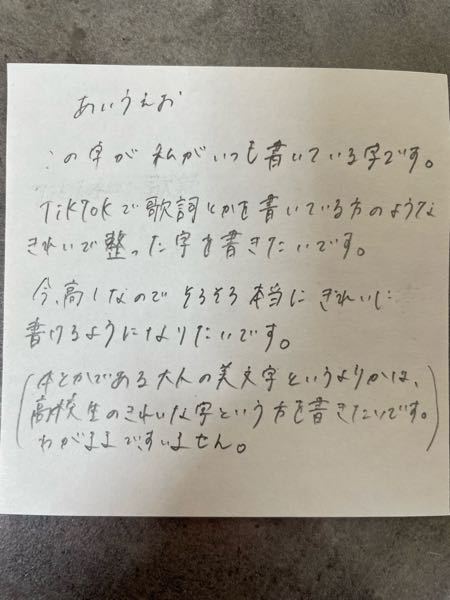 あいうえお
この字が私がいつも書いている字です。
TikTokで歌詞とかを書いている方のような
きれいで整った字を書きたいです。
今、高1なのでそろそろ本当にきれいに
書けるようになりたいです。
(本とかである大人の美文字というよりかは、
高校生のきれいな字という方を書きたいです。
わがままですいません。)